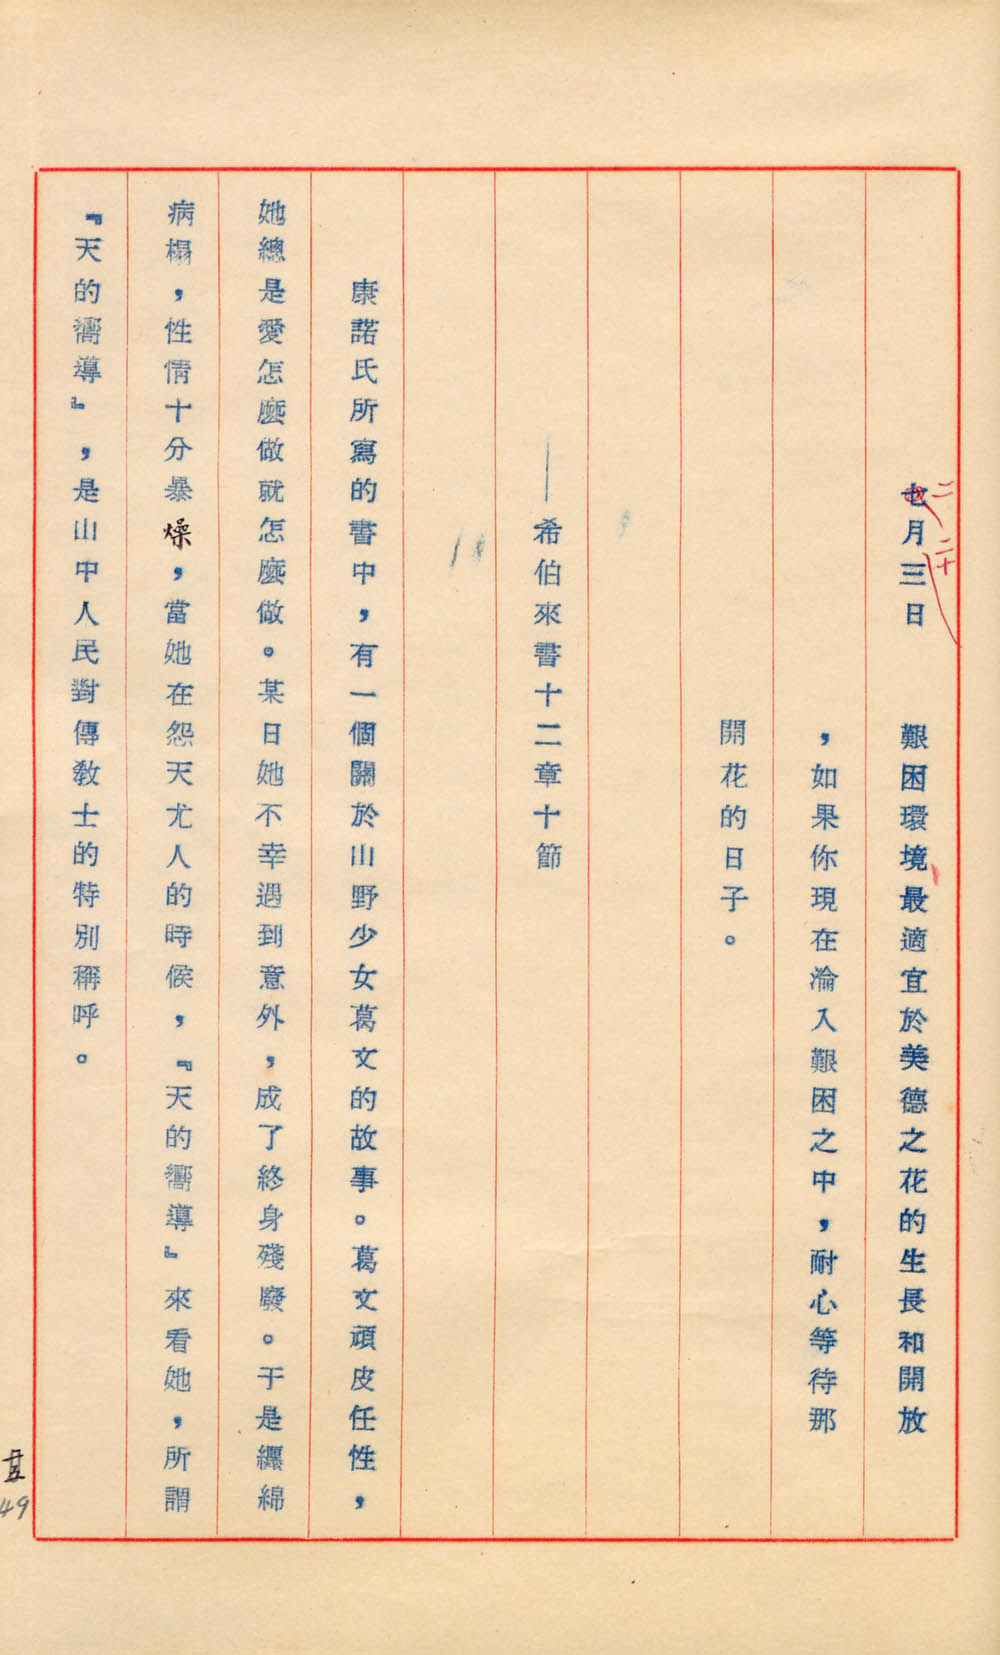 七月三日　艱困環境最適宜於美德之花的生長和開放
，如果你現在淪入艱困之中，耐心等待那
開花的日子。
——希伯來書十二章十節
康諾氏所寫的書中，有一個關於山野少女葛文的故事。葛文頑皮任性，
她總是愛怎麼做就怎麼做。某日她不幸遇到意外，成了終身殘廢。于是纏綿
病榻，性情十分暴燥，當她在怨天尤人的時候，『天的嚮導』來看她，所謂
『天的嚮導』，是山中人民對傳教士的特別稱呼。
二
二十
49